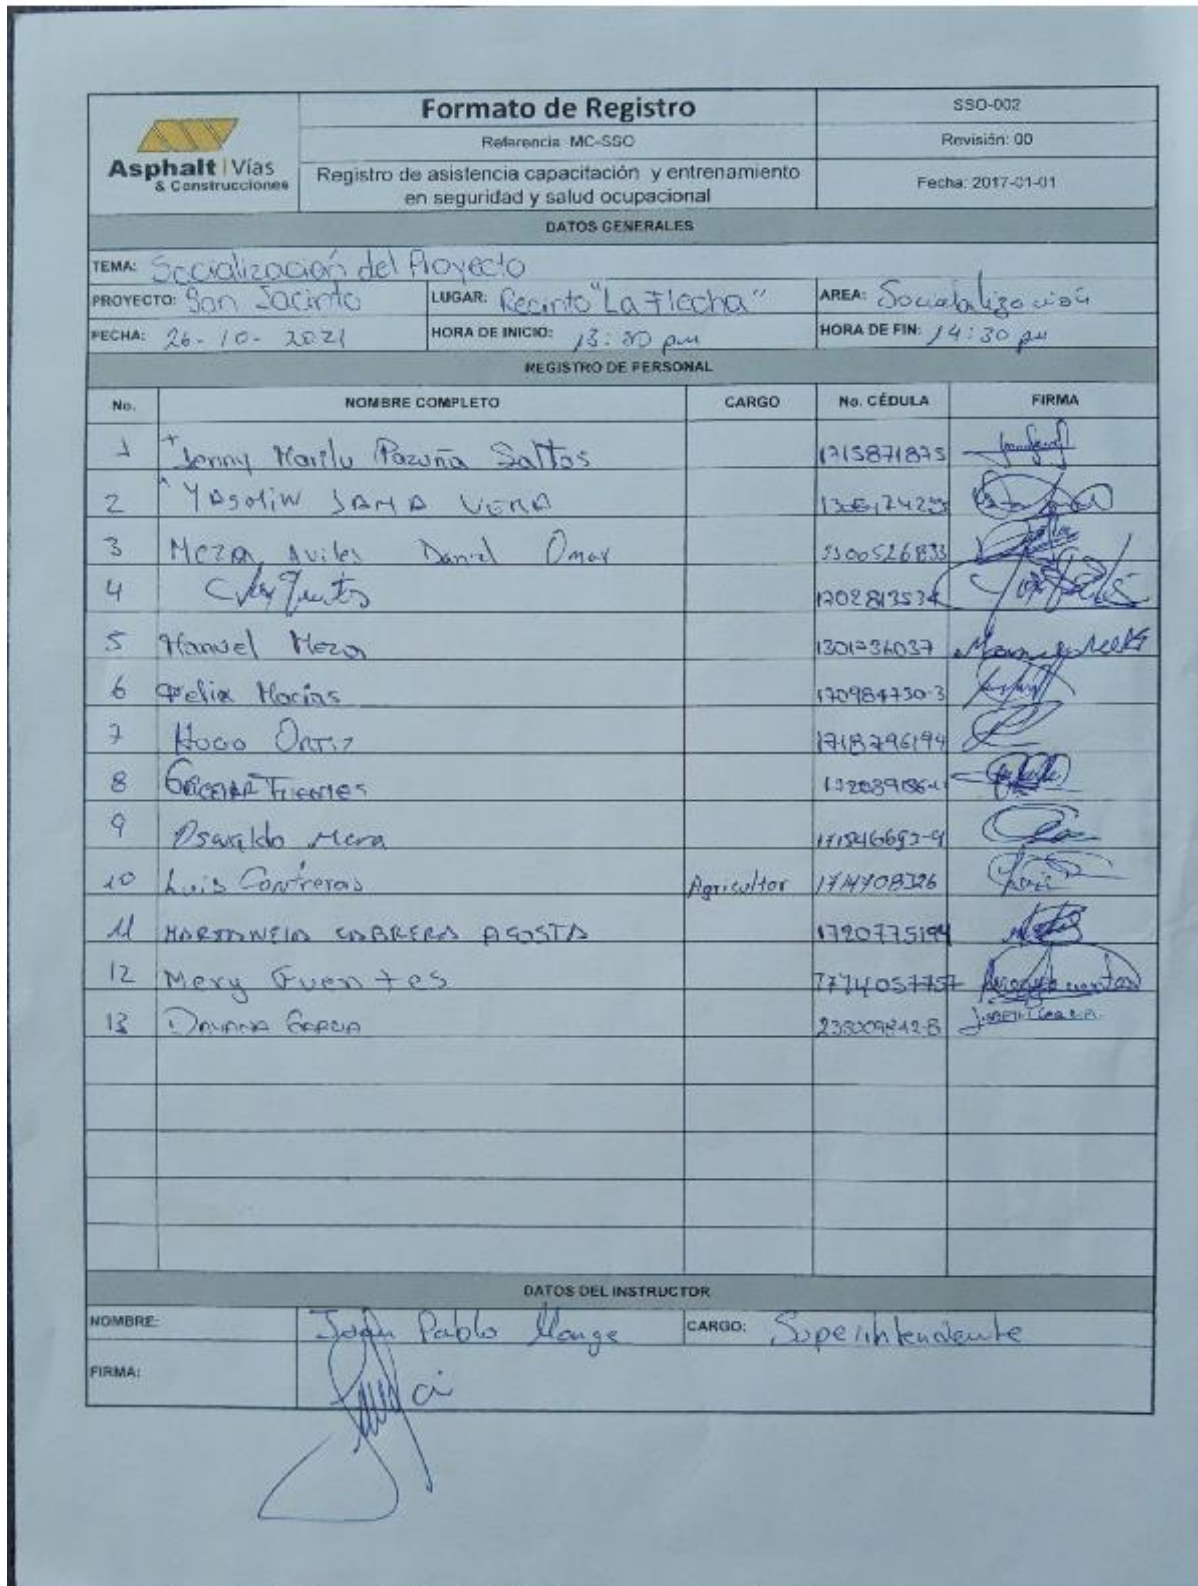 Asphalt | Vías
& Construcciones
Formato de Registro
Referencia MC-SSO
Registro de asistencia capacitación y entrenamiento
en seguridad y salud ocupacional
SSO-002
Revisión: 00
Fecha: 2017-01-01
DATOS GENERALES
TEMA: Socialización del Proyecto
PROYECTO: San Jacinto LUGAR: Recinto "La Flecha" AREA:
FECHA: 26-10-2021 HORA DE INICIO: HORA DE FIN: 14:30 pm
REGISTRO DE PERSONAL
No. NOMBRE COMPLETO CARGO No. CÉDULA FIRMA
1 Jenny Marilu Pazuña Saltos 1715871875
2 JAMA VERA
3 Meza Aviles Daniel Omar
4
5 Manuel Meza
6 Felix Macias 170984730-3
7 Hugo Ortiz 1718796194
8 Fuentes
9 Osvaldo Mera
10 Luis Contreras Agricultor 1714708326
11 CABRERA 1720775194
12 Mery Fuentes
13 DAYANA GARCIA
DATOS DEL INSTRUCTOR
NOMBRE: Juan Pablo Monge CARGO: Superintendente
FIRMA: